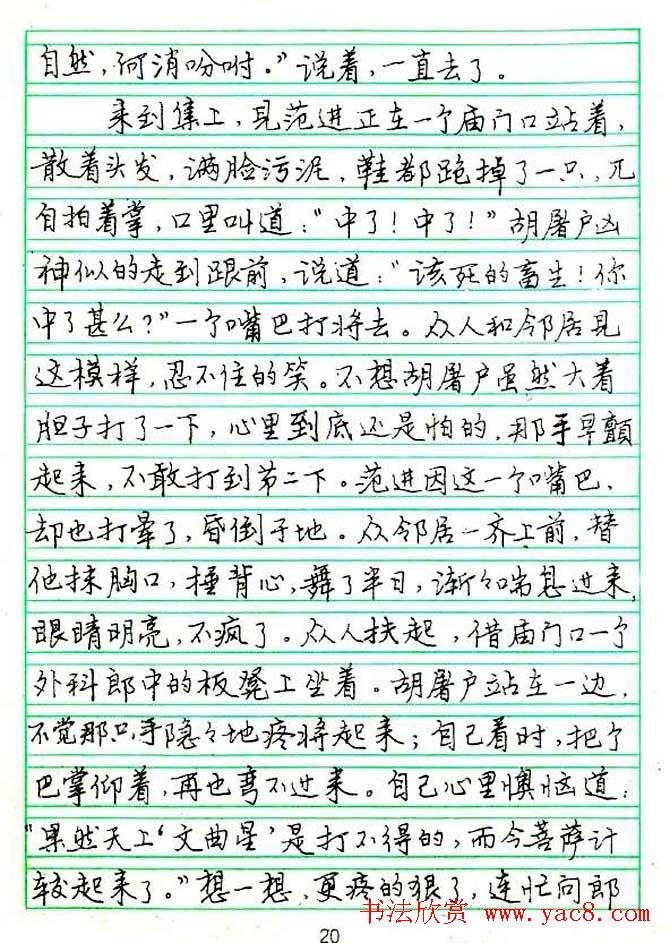 自然，何消吩咐。”说着，一直去了。
来到集上，见范进正在一个庙门口站着，
散着头发，满脸污泥，鞋都跑掉了一只，兀
自拍着掌，口里叫道：“中了！中了！”胡屠户凶
神似的走到跟前，说道：“该死的畜生！你
中了甚么？”一个嘴巴打将去。众人和邻居见
这模样，忍不住的笑。不想胡屠户虽然大着
胆子打了一下，心里到底还是怕的，那手早颤
起来，不敢打到第二下。范进因这一个嘴巴，
却也打晕了，昏倒于地。众邻居一齐上前，替
他抹胸口，捶背心，舞了半日，渐々喘息过来，
眼睛明亮，不疯了。众人扶起，借庙门口一个
外科郎中的板凳上坐着。胡屠户站在一边，
不觉那只手隐々地疼将起来；自己看时，把个
巴掌仰着，再也弯不过来。自己心里懊恼道：
“果然天上‘文曲星’是打不得的，而今菩萨计
较起来了。”想一想，更疼的狠了，连忙向郎
书法欣赏 www.yac8.com
20